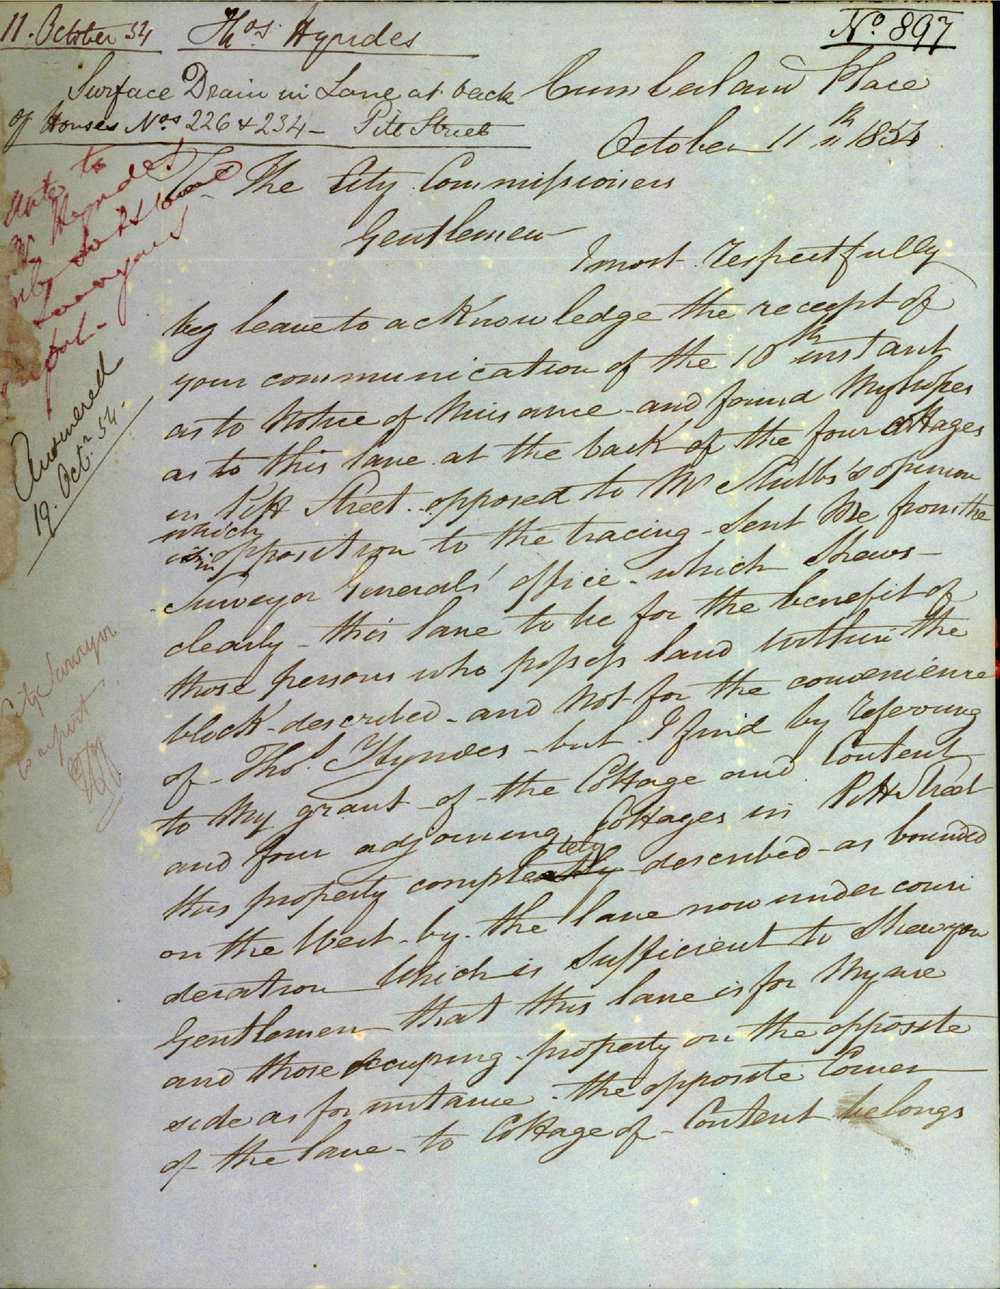 11. October 54 Thos. Hyndes
No. 897
Surface Drain in Lane at back
of Houses Nos 226 & 234 - Pitt Street
Cumberland Place
October 11th 1854
To The City Commissioners
Gentlemen
I most respectfully
beg leave to acknowledge the receipt of
your communication of the 10th instant
as to Notice of Nuisance - and found My hopes
as to this lane at the back of the four cottages
in Pitt Street - opposed to Mr Stubbs's opinion
which
is in opposition to the tracing - sent Me from the
Surveyor Generals' office - which shews -
clearly - this lane to be for the benefit of
those persons who possess land within the
block - described - and not for the convenience
of - Thos. Hyndes - but I find by refering
to My grant - of - the Cottage and Content
and four adjoining Cottages in Pitt Street
this property completely - described - as bounded
on the West - by - the lane now under consi
deration which is sufficient to shew you
Gentlemen - that this lane is for My use
and those occupying - property on the opposite
side as for instance - the opposite Corner
of the lane - to Cottage of - Content belongs
to
Mr Hyndes
Surveyors
report -
Answered
19. Octr. 54 -
City Surveyor
to report